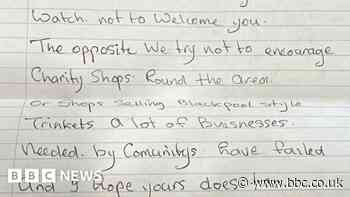 Watch. not to Welcome you.
The opposite We try not to encourage
Charity Shops Round the area.
or Shops Selling Blackpool style
Trinkets a lot of Businesses.
Needed. by Comunitys have failed
and I hope yours does
BBC NEWS
www.bbc.co.uk